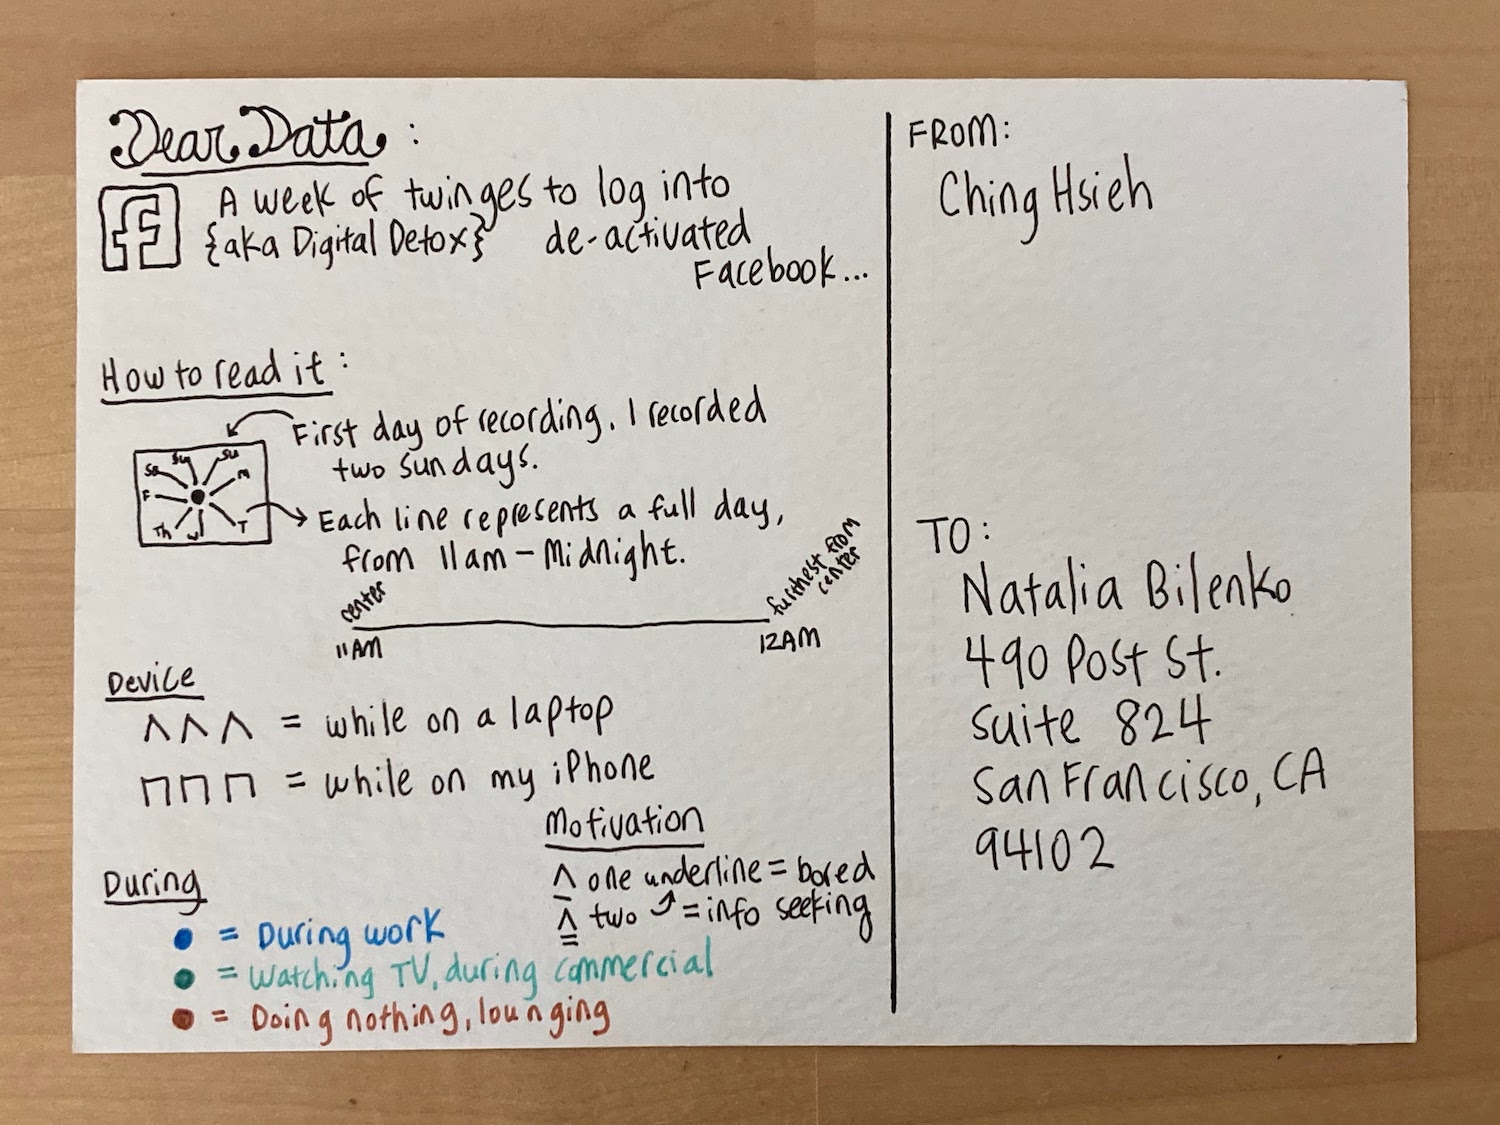 Dear Data:
f
A week of twinges to log into
{aka Digital Detox} de-activated
Facebook...
How to read it:
First day of recording. I recorded
two Sundays.
Su Su
Sa M
F
Th W T
Each line represents a full day,
from 11am - Midnight.
center
furthest from
center
11AM
12AM
Device
ʌʌʌ = while on a laptop
⊓⊓⊓ = while on my iPhone
Motivation
ʌ one underline = bored
ʌ two ⤴ = info seeking
During
= During work
= Watching TV, during commercial
= Doing nothing, lounging
FROM:
Ching Hsieh
TO:
Natalia Bilenko
490 Post St.
Suite 824
San Francisco, CA
94102